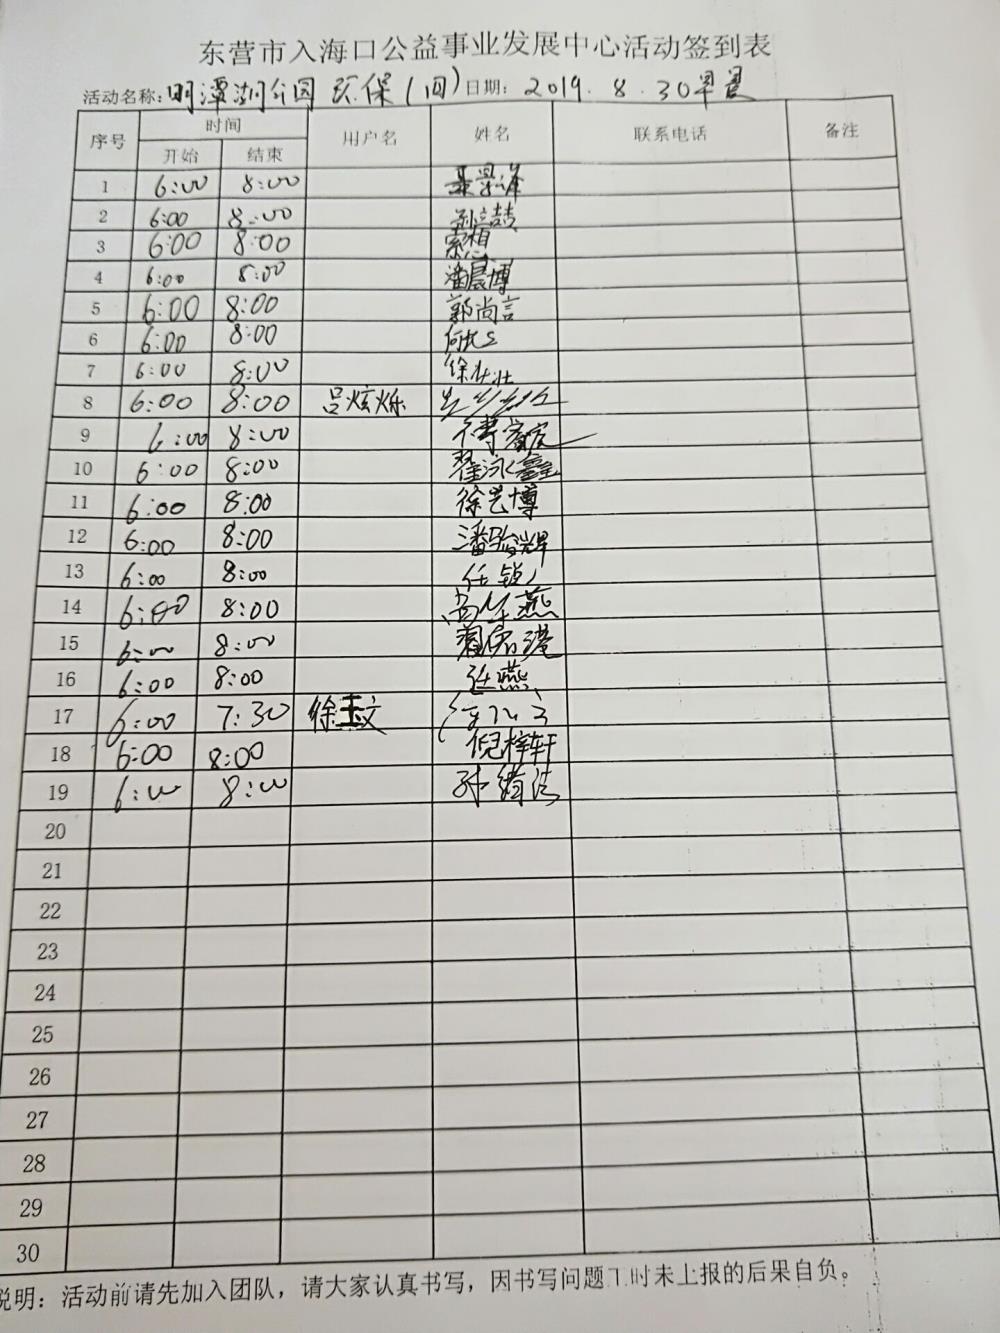 东营市入海口公益事业发展中心活动签到表
活动名称：明潭湖公园 环保（四）日期：2019.8.30早晨
序号 时间 用户名 姓名 联系电话 备注
开始 结束
1 6:00 8:00
2 6:00 8:00
3 6:00 8:00 索想
4 6:00 8:00 潘晨博
5 6:00 8:00 郭尚言
6 6:00 8:00
7 6:00 8:00 徐壮壮
8 6:00 8:00 吕炫烁
9 6:00 8:00
10 6:00 8:00 翟泳鑫
11 6:00 8:00 徐艺博
12 6:00 8:00 潘骀辉
13 6:00 8:00 任锐
14 6:00 8:00 尚华燕
15 6:00 8:00
16 6:00 8:00 延燕
17 6:00 7:30 徐玉文
18 6:00 8:00 倪梓轩
19 6:00 8:00 孙绪洁
20
21
22
23
24
25
26
27
28
29
30
说明：活动前请先加入团队，请大家认真书写，因书写问题工时未上报的后果自负。